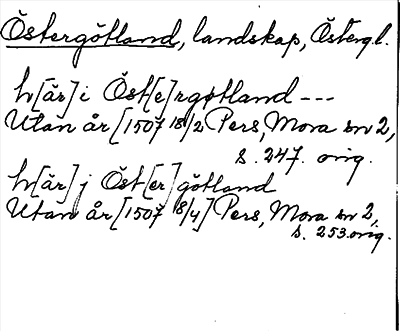 Östergötland, landskap, Östergl.
h[är] i Öst[e]rgøtland ---
Utan år [1507 18/2 Pers, Mora nr 2,
s. 247. orig.
h[är] j Öst[er]götland
Utan år [1507 8/4] Pers, Mora nr 2,
s. 253 orig.